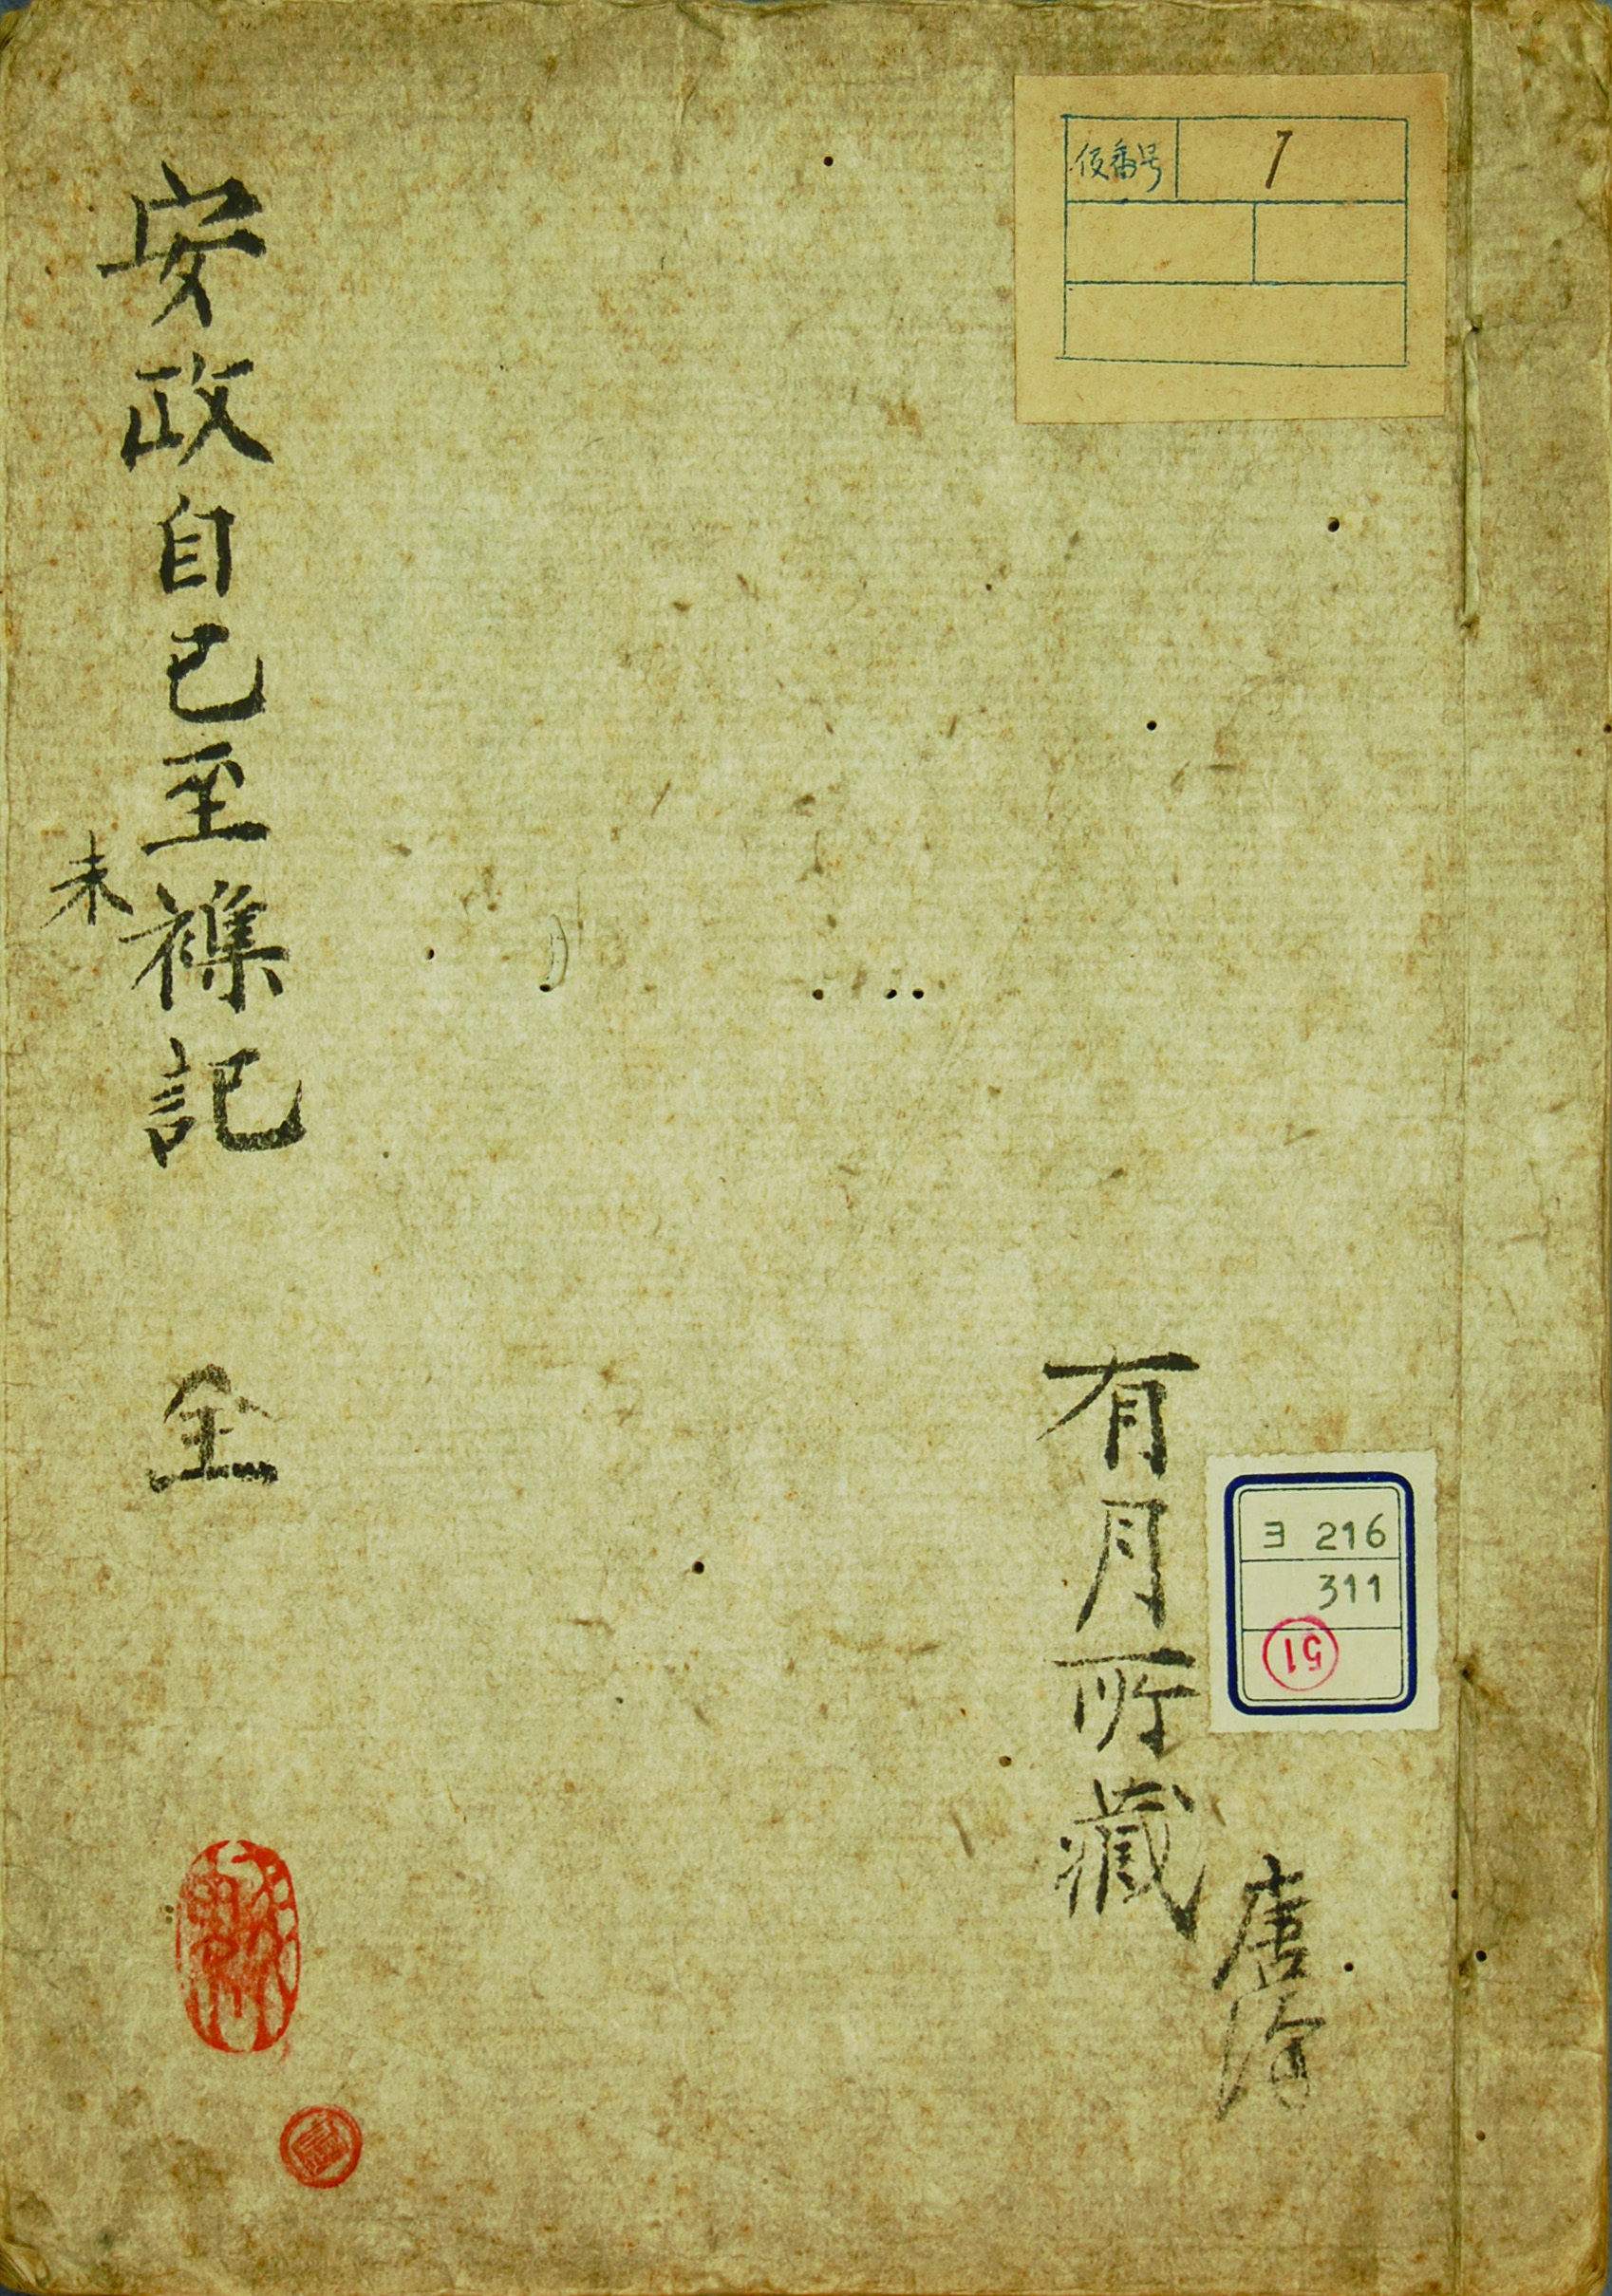 仮番号 7
ヨ 216
311
51
有月所蔵
唐澘
安政自己至未襍記 全